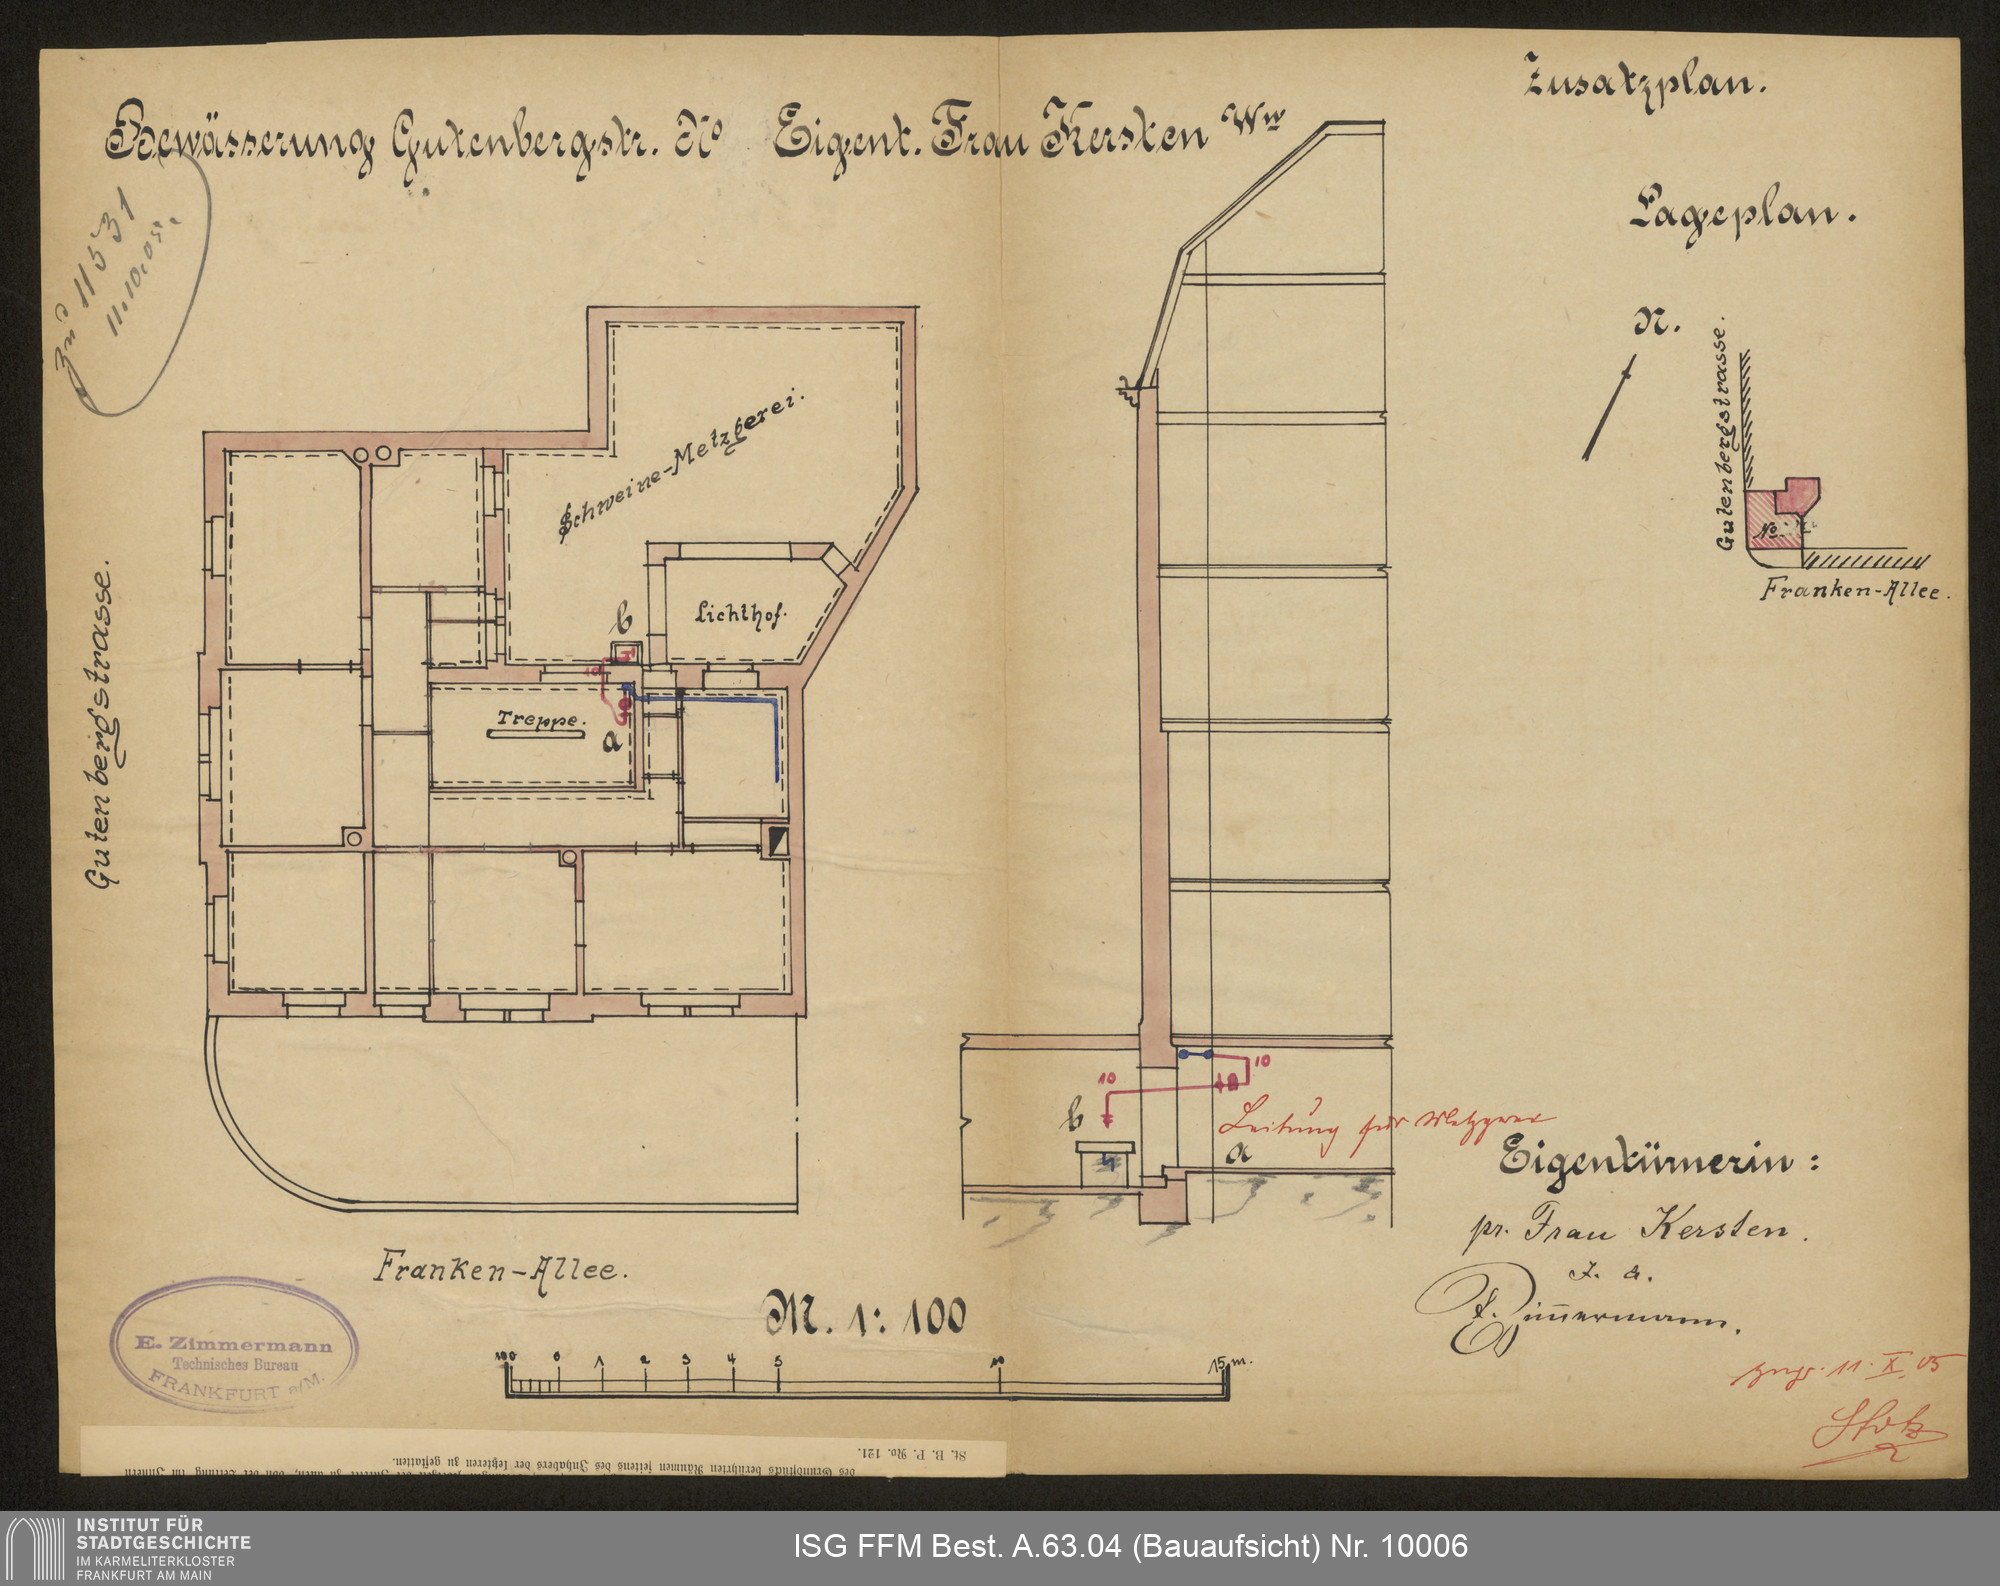 Zusatzplan.
Bewässerung Gutenbergstr. No Eigent. Frau Kersten Ww
zu 11531
11.10.05.
Lageplan.
N.
Gutenbergstrasse.
No
Franken-Allee.
Schweine-Metzgerei.
Lichthof.
b
10
Treppe.
a
Gutenbergstrasse.
Franken-Allee.
10
10
b
Leitung für Metzgerei
a
Eigentümerin:
pr. Frau Kersten.
I. A.
E. Zimmermann.
M. 1:100
100 0 1 2 3 4 5 10 15 m.
E. Zimmermann
Technisches Bureau
FRANKFURT a/M.
11. X. 05
St. B. P. No. 121.
des Grundstücks berührten Räumen seitens des Inhabers der letzteren zu gestatten.
INSTITUT FÜR
STADTGESCHICHTE
IM KARMELITERKLOSTER
FRANKFURT AM MAIN
ISG FFM Best. A.63.04 (Bauaufsicht) Nr. 10006